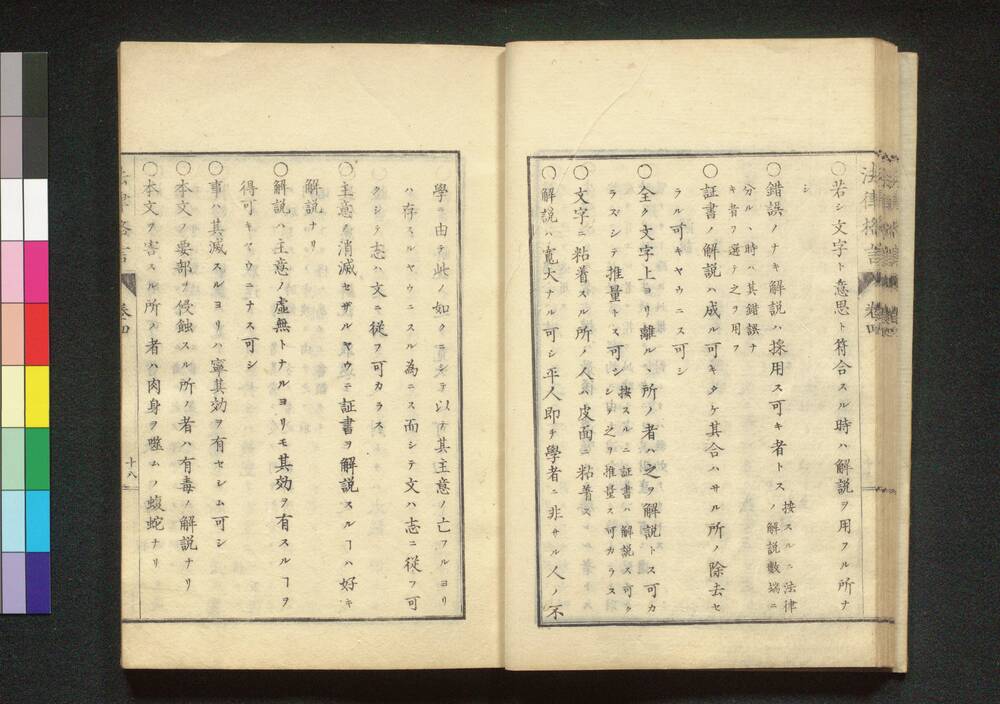 法律格言 卷四
○若シ文字ト意思ト符合スル時ハ解說ヲ用フル所ナ
シ
○錯誤ノナキ解說ハ採用ス可キ者トス 按スルニ法律
ノ解說數端ニ
分ルヽ時ハ其錯誤ナ
キ者ヲ選テ之ヲ用フ
○証書ノ解說ハ成ル可キタケ其合ハサル所ノ除去セ
ラル可キヤウニス可シ
○全ク文字上ヨリ離ルヽ所ノ者ハ之ヲ解說トス可カ
ラズシテ推量トス可シ 按スルニ証書ハ解說ス可ク
シテ之ヲ推量ス可カラス
○文字ニ粘着スル所ノ人ハ皮面ニ粘着ス
○解說ハ寬大ナル可シ平人即チ學者ニ非サル人ノ不
學ニ由テ此ノ如クニシテ以テ其主意ノ亡フルヨリ
ハ存スルヤウニスル為ニス而シテ文ハ志ニ從フ可
クシテ志ハ文ニ從フ可カラス
○主意ノ消滅セザルヤウニ証書ヲ解說スルヿハ好キ
解說ナリ
○解說ハ主意ノ虛無トナルヨリモ其効ヲ有スルヿヲ
得可キヤウニナス可シ
○事ハ其滅スルヨリハ寧其効ヲ有セシム可シ
○本文ノ要部ヲ侵蝕スル所ノ者ハ有毒ノ解說ナリ
○本文ヲ害スル所ノ者ハ肉身ヲ噬ムノ蝮蛇ナリ
卷四
十八